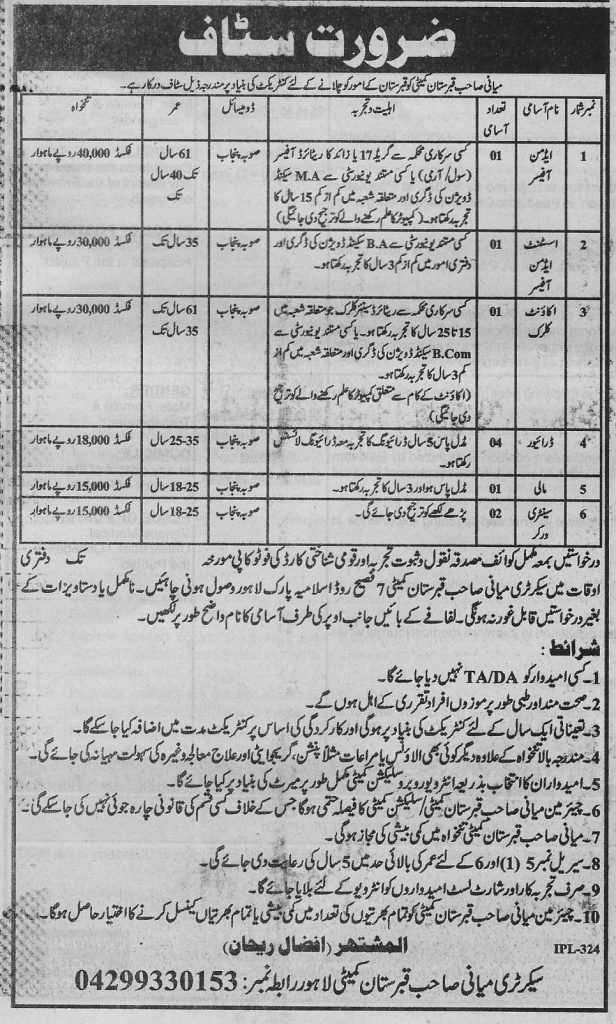 ضرورت سٹاف
میانی صاحب قبرستان کمیٹی کو قبرستان کے امور کو چلانے کے لئے کنٹریکٹ کی بنیاد پر مندرجہ ذیل سٹاف درکار ہے۔
نمبر شمار نام اسامی تعداد اسامی اہلیت و تجربہ ڈومیسائل عمر تنخواہ
1 ایڈمن آفیسر 01 کسی سرکاری محکمہ سے گریڈ 17 یا زائد کا ریٹائرڈ آفیسر صوبہ پنجاب 61 سال فکسڈ 40,000 روپے ماہوار
(سول/آرمی) یا کسی مستند یونیورسٹی سے M.A سیکنڈ تک 40 سال
ڈویژن کی ڈگری اور متعلقہ شعبہ میں کم از کم 15 سال کا تک
تجربہ رکھتا ہو۔ (کمپیوٹر کا علم رکھنے والے کو ترجیح دی جائیگی)
2 اسسٹنٹ ایڈمن آفیسر 01 کسی مستند یونیورسٹی سے B.A سیکنڈ ڈویژن کی ڈگری اور صوبہ پنجاب 35 سال تک فکسڈ 30,000 روپے ماہوار
دفتری امور میں کم از کم 3 سال کا تجربہ رکھتا ہو۔
3 اکاؤنٹ کلرک 01 کسی سرکاری محکمہ سے ریٹائرڈ سینئر کلرک جو متعلقہ شعبہ میں صوبہ پنجاب 61 سال تک فکسڈ 30,000 روپے ماہوار
15 تا 25 سال کا تجربہ رکھتا ہو۔ یا کسی مستند یونیورسٹی سے 35 سال
B.Com سیکنڈ ڈویژن کی ڈگری اور متعلقہ شعبہ میں کم از
کم 3 سال کا تجربہ رکھتا ہو۔
(اکاؤنٹ کے کام سے متعلق کمپیوٹر کا علم رکھنے والے کو ترجیح
دی جائیگی)
4 ڈرائیور 04 مڈل پاس 5 سال ڈرائیونگ کا تجربہ معہ ڈرائیونگ لائسنس صوبہ پنجاب 25-35 سال فکسڈ 18,000 روپے ماہوار
رکھتا ہو۔
5 مالی 01 مڈل پاس ہو اور 3 سال کا تجربہ رکھتا ہو۔ صوبہ پنجاب 18-25 سال فکسڈ 15,000 روپے ماہوار
6 سینٹری ورکر 02 پڑھے لکھے کو ترجیح دی جائے گی۔ صوبہ پنجاب 18-25 سال فکسڈ 15,000 روپے ماہوار
درخواستیں بمعہ مکمل کوائف مصدقہ نقول و ثبوت تجربہ اور قومی شناختی کارڈ کی فوٹو کاپی مورخہ تک دفتری
اوقات میں سیکرٹری میانی صاحب قبرستان کمیٹی 7 فصیح روڈ اسلامیہ پارک لاہور وصول ہونی چاہئیں۔ نامکمل یا دستاویزات کے
بغیر درخواستیں قابل غور نہ ہونگی۔ لفافے کے بائیں جانب اوپر کی طرف آسامی کا نام واضح طور پر لکھیں۔
شرائط:
1- کسی امیدوار کو TA/DA نہیں دیا جائے گا۔
2- صحت مند اور طبی طور پر موزوں افراد تقرری کے اہل ہوں گے۔
3- تعیناتی ایک سال کے لئے کنٹریکٹ کی بنیاد پر ہوگی اور کارکردگی کی اساس پر کنٹریکٹ مدت میں اضافہ کیا جا سکے گا۔
4- مندرجہ بالا تنخواہ کے علاوہ دیگر کوئی بھی الاؤنس یا مراعات مثلاً پنشن، گریجوایٹی اور علاج معالجہ وغیرہ کی سہولت مہیا نہ کی جائے گی۔
5- امیدواران کا انتخاب بذریعہ انٹرویو روبرو سلیکشن کمیٹی مکمل طور پر میرٹ کی بنیاد پر کیا جائے گا۔
6- چیئرمین میانی صاحب قبرستان کمیٹی/سلیکشن کمیٹی کا فیصلہ حتمی ہوگا جس کے خلاف کسی قسم کی قانونی چارہ جوئی نہیں کی جا سکے گی۔
7- میانی صاحب قبرستان کمیٹی تنخواہ میں کمی بیشی کی مجاز ہوگی۔
8- سیریل نمبر 5 (1) اور 6 کے لئے عمر کی بالائی حد میں 5 سال کی رعایت دی جائے گی۔
9- صرف تجربہ کار اور شارٹ لسٹ امیدواروں کو انٹرویو کے لئے بلایا جائے گا۔
10- چیئرمین میانی صاحب قبرستان کمیٹی کو تمام بھرتیوں کی تعداد میں کمی بیشی یا تمام بھرتیاں کینسل کرنے کا اختیار حاصل ہوگا۔
IPL-324 المشتہر (افضال ریحان)
سیکرٹری میانی صاحب قبرستان کمیٹی لاہور رابطہ نمبر: 04299330153